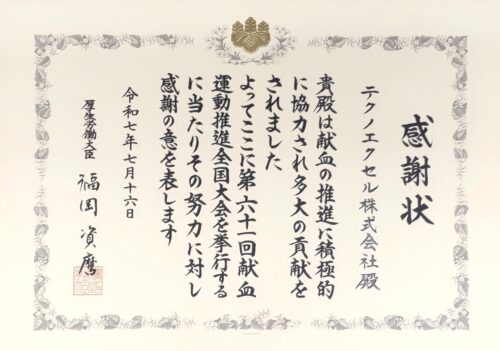 感謝状
テクノエクセル株式会社殿
貴殿は献血の推進に積極的
に協力され多大の貢献を
されました
よってここに第六十一回献血
運動推進全国大会を挙行する
に当たりその努力に対し
感謝の意を表します
令和七年七月十六日
厚生労働大臣
福岡資麿